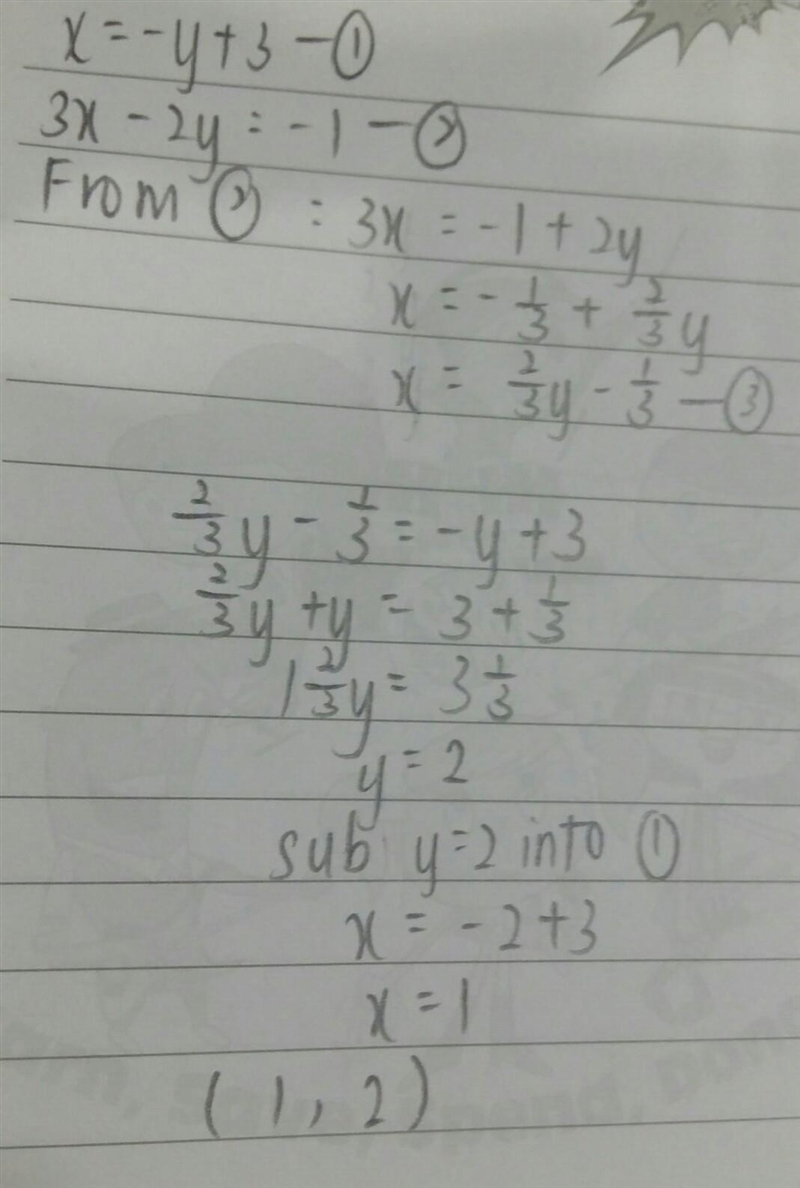 x = -y + 3 - ①
3x - 2y = -1 - ②
From ② : 3x = -1 + 2y
x = - 1/3 + 2/3 y
x = 2/3 y - 1/3 - ③
2/3 y - 1/3 = -y + 3
2/3 y + y = 3 + 1/3
1 2/3 y = 3 1/3
y = 2
sub y = 2 into ①
x = -2 + 3
x = 1
(1, 2)